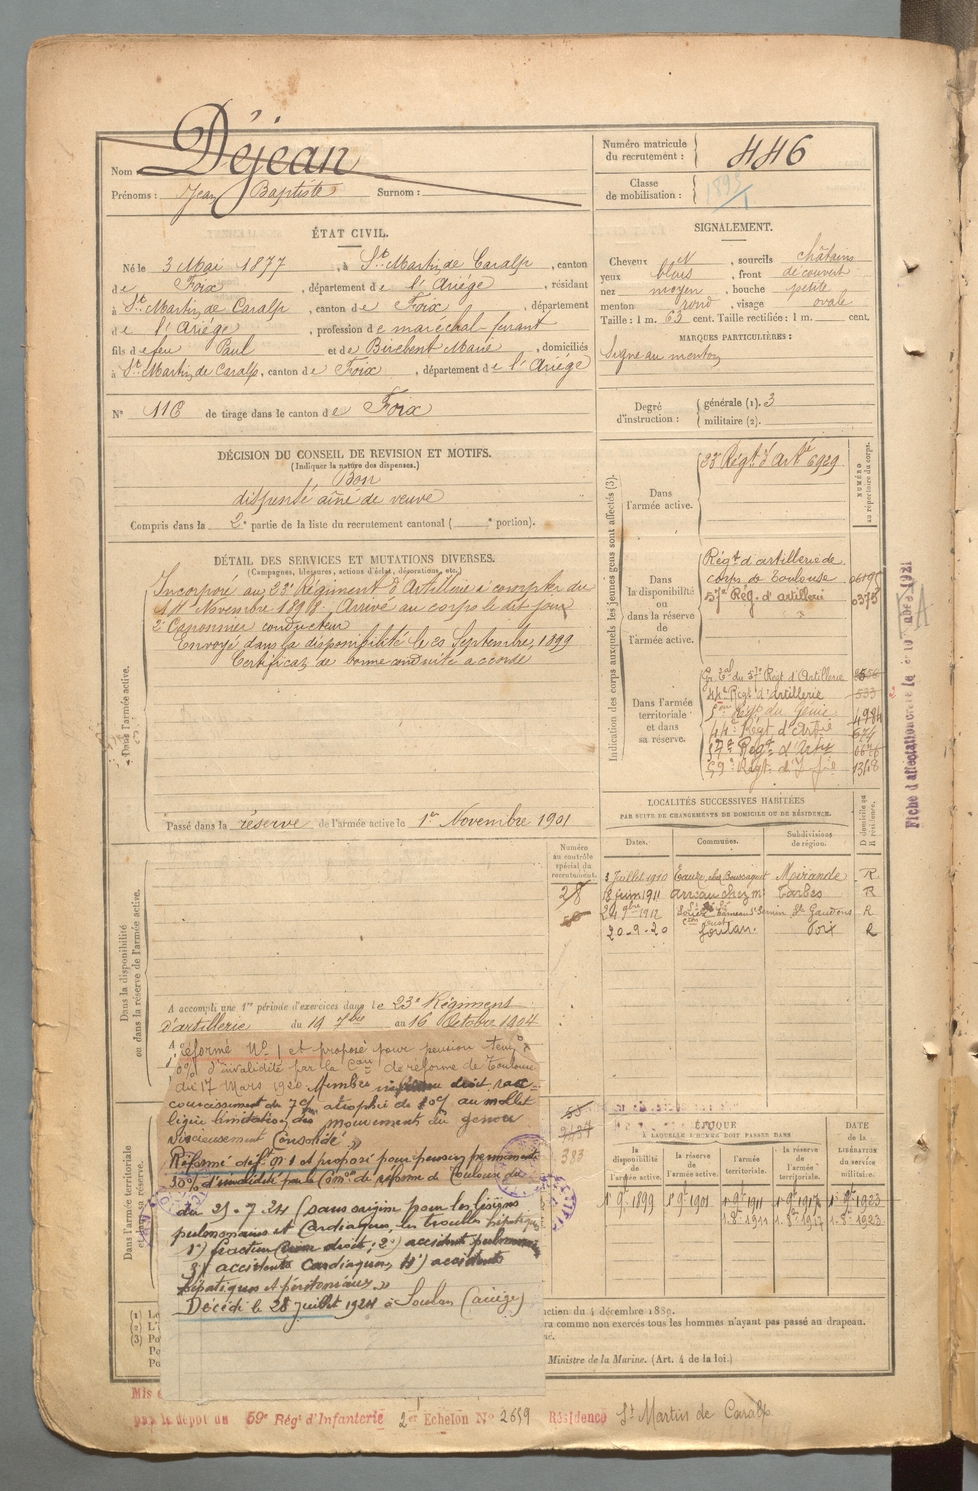 Nom Déjean
Prénoms : Jean Baptiste Surnom :
Numéro matricule du recrutement : 446
Classe de mobilisation : 1895
ÉTAT CIVIL.
Né le 3 Mai 1877, à St. Martin de Caralp, canton
de Foix, département de l'Ariége, résidant
à St. Martin de Caralp, canton de Foix, département
de l'Ariége, profession de maréchal-ferrant
fils de feu Paul et de Birebent Marie, domiciliés
à St. Martin de Caralp, canton de Foix, département de l'Ariége
N° 116 de tirage dans le canton de Foix
SIGNALEMENT.
Cheveux N, sourcils châtains
yeux bleus, front découvert
nez moyen, bouche petite
menton rond, visage ovale
Taille : 1 m. 63 cent. Taille rectifiée : 1 m. cent.
MARQUES PARTICULIÈRES :
Signe au menton
Degré d'instruction : générale (1). 3
militaire (2).
DÉCISION DU CONSEIL DE REVISION ET MOTIFS.
(Indiquer la nature des dispenses.)
Bon
dispensé aîné de veuve
Compris dans la 2e partie de la liste du recrutement cantonal ( e portion).
DÉTAIL DES SERVICES ET MUTATIONS DIVERSES.
(Campagnes, blessures, actions d'éclat, décorations, etc.)
Incorporé au 23e Régiment d'Artillerie à compter du
14 Novembre 1898, Arrivé au corps le dit jour
2e Canonnier conducteur
Envoyé dans la disponibilité le 20 Septembre 1899
Certificat de bonne conduite accordé
Dans l'armée active.
Passé dans la réserve de l'armée active le 1er Novembre 1901
Indication des corps auxquels les jeunes gens sont affectés (3).
NUMÉRO au répertoire du corps.
Dans l'armée active.
23e Régt d'Artie 6929
Dans la disponibilité ou dans la réserve de l'armée active.
Régt d'artillerie de
corps de Toulouse
57e Rég. d'artillerie 0375
Dans l'armée territoriale et dans sa réserve.
Gr. tal du 57e Régt d'Artillerie
44e Régt d'Artillerie 533
Régt du Génie 4984
44e Régt d'Artie 674
17e Régt d'Artie
59e Régt d'Inf 1368
Fiche d'affectation
LOCALITÉS SUCCESSIVES HABITÉES
PAR SUITE DE CHANGEMENTS DE DOMICILE OU DE RÉSIDENCE.
Dates. Communes. Subdivisions de région. D domicile ou R résidence.
3 Juillet 1910 Eauze, chez Boussagut Mirande R
18 Juin 1911 Arreau chez m Tarbes R
24 9bre 1912 St Gaudens R
20-9-20 Soulan. Foix R
Numéro au contrôle spécial du recrutement.
28
Dans la disponibilité ou dans la réserve de l'armée active.
A accompli une 1re période d'exercices dans le 23e Régiment
d'artillerie du 19 7bre au 16 Octobre 1904
Réformé No 1 et proposé pour pension temp
d'invalidité par la Con de réforme de Toulouse
du 17 Mars 1920. Membre inférieur droit, rac-
courcissement de 7 cm atrophie de au mollet
légère limitation des mouvements du genou
vicieusement consolidé"
Réformé déft. No 1 et proposé pour pension permanente
30% d'invalidité par la Comon de réforme de Toulouse du
du 21.7.24 (sans origine pour les lésions
pulmonaires et cardiaques, les troubles hépatiques
1°) fracture droit; 2°) accidents pulmonaires
3°) accidents cardiaques, 4°) accidents
hépatiques et péritonéaux"
Décédé le 28 Juillet 1924 à Soulan (ariège)
Dans l'armée territoriale et dans sa réserve.
383
ÉPOQUE
À LAQUELLE L'HOMME DOIT PASSER DANS
la disponibilité de l'armée active. la réserve de l'armée active. l'armée territoriale. la réserve de l'armée territoriale.
DATE de la LIBÉRATION du service militaire.
1er 9bre 1899 1er 9bre 1901 1er 9bre 1911 1er 9bre 1917 1er 9bre 1923
1. 8bre 1911 1. 8bre 1917 1. 8bre 1923
ction du 4 décembre 1889.
ra comme non exercés tous les hommes n'ayant pas passé au drapeau.
Ministre de la Marine. (Art. 4 de la loi.)
par le dépôt du 59e Régt d'Infanterie 2e Echelon No 2659 Résidence St Martin de Caralp